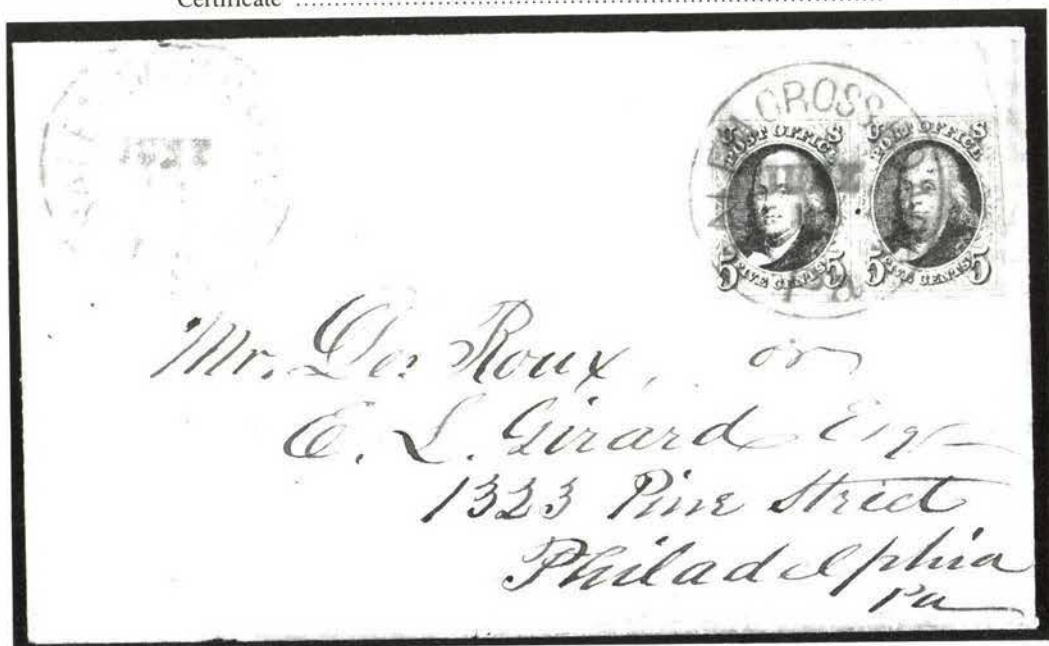 Certificate ........................................................................................
CROSS
U S
POST OFFICE
FIVE CENTS
5 5
U S
POST OFFICE
FIVE CENTS
5 5
Pa
Mr. Des Roux, or
E. L. Girard Esq
1323 Pine Street
Philadelphia
Pa